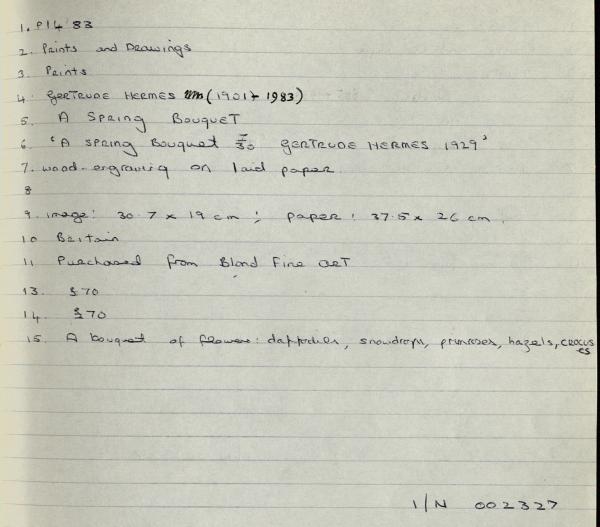 1. P14 83
2. Prints and Drawings
3. Prints
4. GERTRUDE HERMES (1901-1983)
5. A SPRING BOUQUET
6. 'A SPRING Bouquet 7/30 GERTRUDE HERMES 1929'
7. wood-engraving on laid paper
8
9. image: 30.7 x 19 cm; paper: 37.5 x 26 cm.
10 Britain
11 Purchased from Blond Fine ART
13. £70
14. £70
15. A bouquet of flowers: daffodils, snowdrops, primroses, hazels, crocuses
I/N 002327